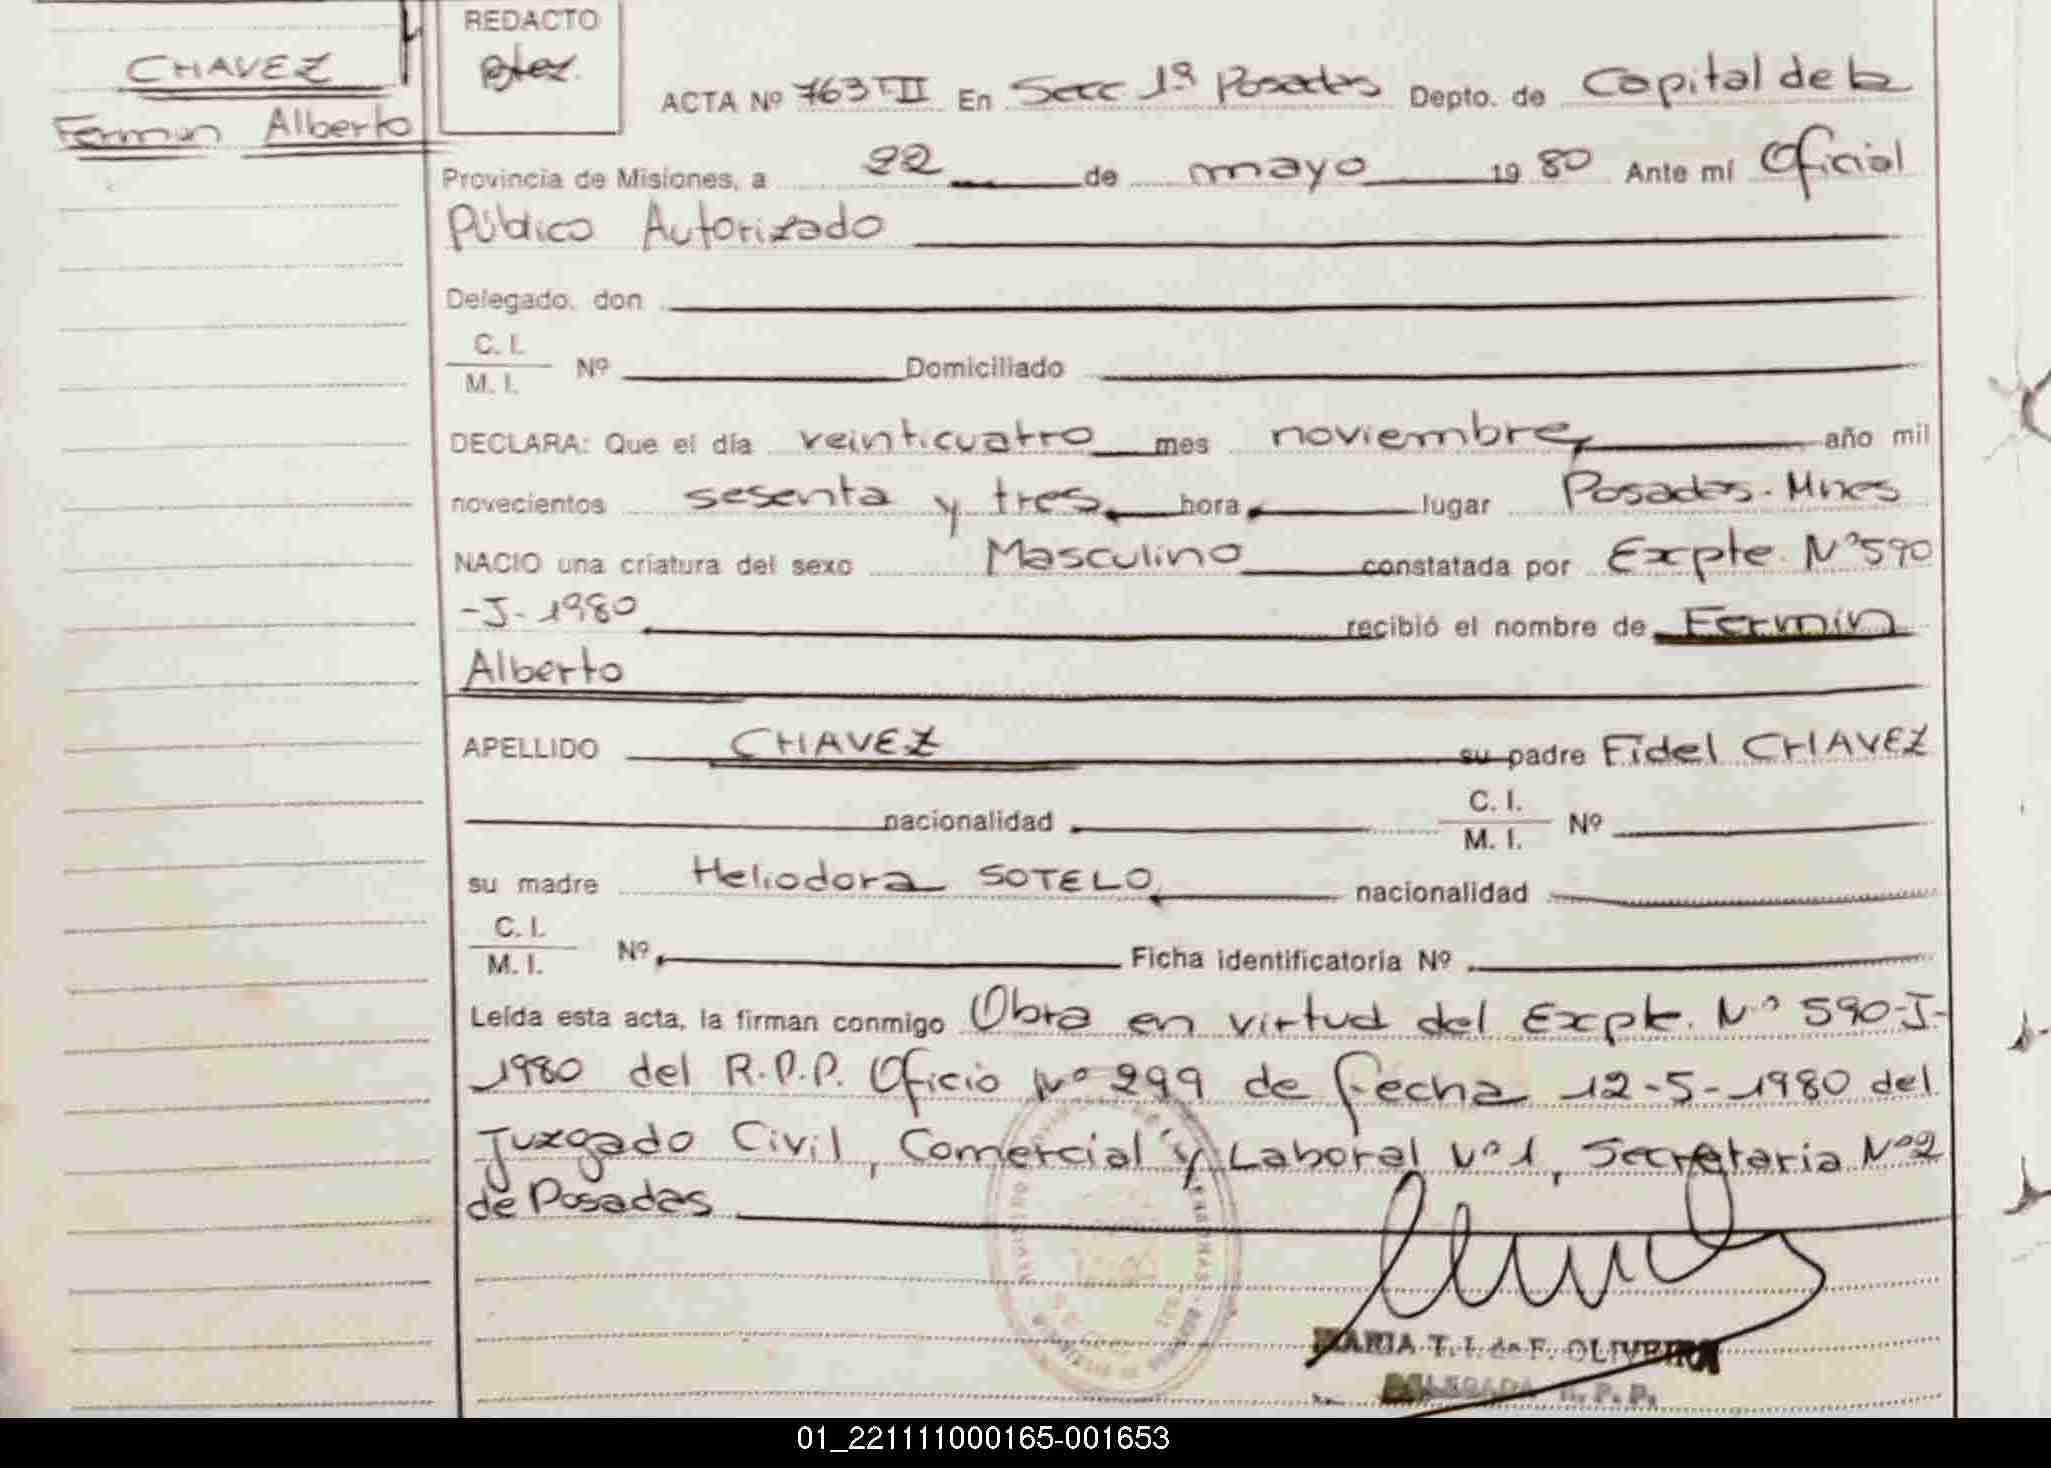 CHAVEZ
Fermin Alberto
REDACTO
ACTA Nº 763 T II En Secc 1ª Posadas Depto. de Capital de la
Provincia de Misiones, a 22 de mayo 1980 Ante mí Oficial
Público Autorizado
Delegado, don
C. I.
M. I. Nº Domiciliado
DECLARA: Que el día veinticuatro mes noviembre, año mil
novecientos sesenta y tres, hora lugar Posadas-Mnes
NACIO una criatura del sexo Masculino constatada por Expte. Nº 590
-J-1980 recibió el nombre de Fermín
Alberto
APELLIDO CHAVEZ su padre Fidel CHAVEZ
nacionalidad C. I.
M. I. Nº
su madre Heliodora SOTELO, nacionalidad
C. I.
M. I. Nº Ficha identificatoria Nº
Leída esta acta, la firman conmigo Obra en virtud del Expte. Nº 590-J-
1980 del R.P.P. Oficio Nº 299 de fecha 12-5-1980 del
Juzgado Civil, Comercial y Laboral Nº 1, Secretaria Nº 2
de Posadas
MARIA T. I. de F. OLIVEIRA
DELEGADA R. P. P.
01_221111000165-001653